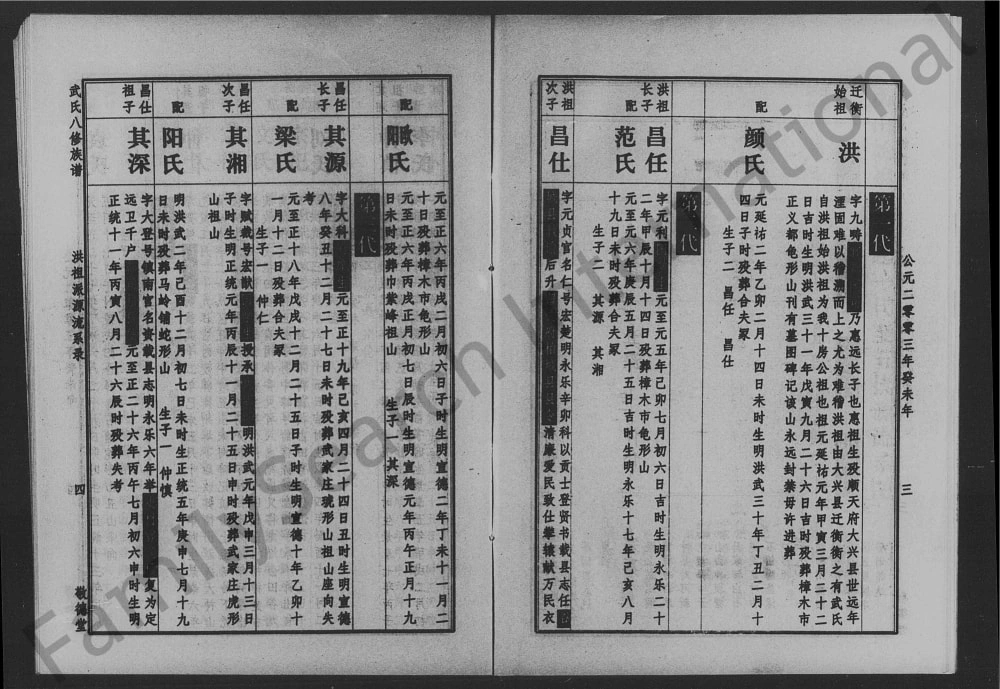 公元二零零三年癸未年
三
第一代
迁衡
始祖
洪
字九畴
乃惠远长子也惠祖生殁顺天府大兴县世远年
湮固难以稽溯而上之尤为难稽洪祖由大兴县迁衡衡之有武氏
自洪祖始洪祖为我十房公祖也祖元延祐元年甲寅三月二十二
日吉时生明洪武三十一年戊寅九月二十六日吉时殁葬樟木市
正义都龟形山刊有墓图碑记该山永远封禁毋许进葬
配
颜氏
元延祐二年乙卯二月十四日未时生明洪武三十年丁丑二月十
四日子时殁葬合夫冢
生子二 昌任 昌仕
第二代
洪祖
长子
昌任
字元利
元至元五年己卯七月初六日吉时生明永乐二十
二年甲辰十月十四日殁葬樟木市龟形山
配
范氏
元至元六年庚辰五月二十五日吉时生明永乐十七年己亥八月
十九日未时殁葬合夫冢
生子二 其源 其湘
洪祖
次子
昌仕
字元贞官名仁号宏楚明永乐辛卯科以贡士登贤书载县志任
后升
清廉爱民致仕攀辕献万民衣
第三代
元至正六年丙戌二月初六日子时生明宣德二年丁未十一月二
十日殁葬樟木市龟形山
生子一 其深
配
欧阳氏
元至正六年丙戌正月初七日辰时生明宣德元年丙午正月十九
日未时殁葬巾紫峰祖山
昌任
长子
其源
字大科
元至正十九年己亥四月二十四日丑时生明宣德
八年癸丑十二月二十七日未时殁葬武家庄珑形山祖山座向失
考
配
梁氏
元至正十八年戊戌十二月二十五日子时生明宣德十年乙卯十
一月十二日殁葬合夫冢
生子一 仲仁
昌任
次子
其湘
字赋裁号宏猷
授承
明洪武元年戊申三月十三日
子时生明正统元年丙辰十一月二十五日申时殁葬武家庄虎形
山祖山
配
阳氏
明洪武二年己酉十二月初七日未时生正统五年庚申七月十九
日未时殁葬马岭铺蛇形山
生子一 仲慎
昌仕
祖子
其深
字大登号镇南官名资载县志明永乐六年举
复为定
远卫千户
元至正二十六年丙午七月初六申时生明
正统十一年丙寅八月二十六辰时殁葬失考
武氏八修族谱
洪祖派源流系录
四
敬德堂
FamilySearch International